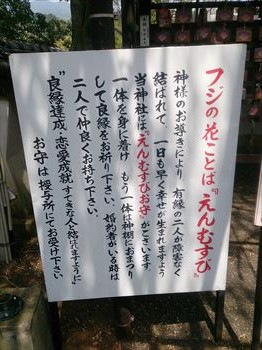 フジの花ことば〝えんむすび〟
神様のお導きにより 有縁の二人が障害なく
結ばれて、一日も早く幸せが生まれますよう
当神社には〝えんむすびお守〟がございます
一体を身に着け もう一体は神棚におまつり
して良縁をお祈り下さい。婚約者がいる時は
二人で仲良くお持ち下さい。
〝良縁達成、恋愛成就、すてきな人と結ばれますように〟
お守は授与所にてお受け下さい